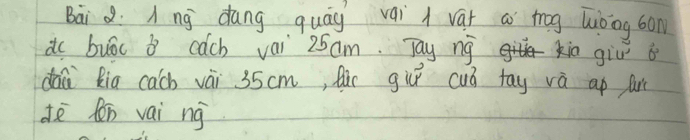 Bài 2: 1 ng đang quảy vai 1 vật có trọg lượng 60N
đc buộc ở cách vai 25cm. Tay ng kia giữ ở
đầu kia cách vai 35cm, lực giữ của tay và áp lực
đè lên vai ng